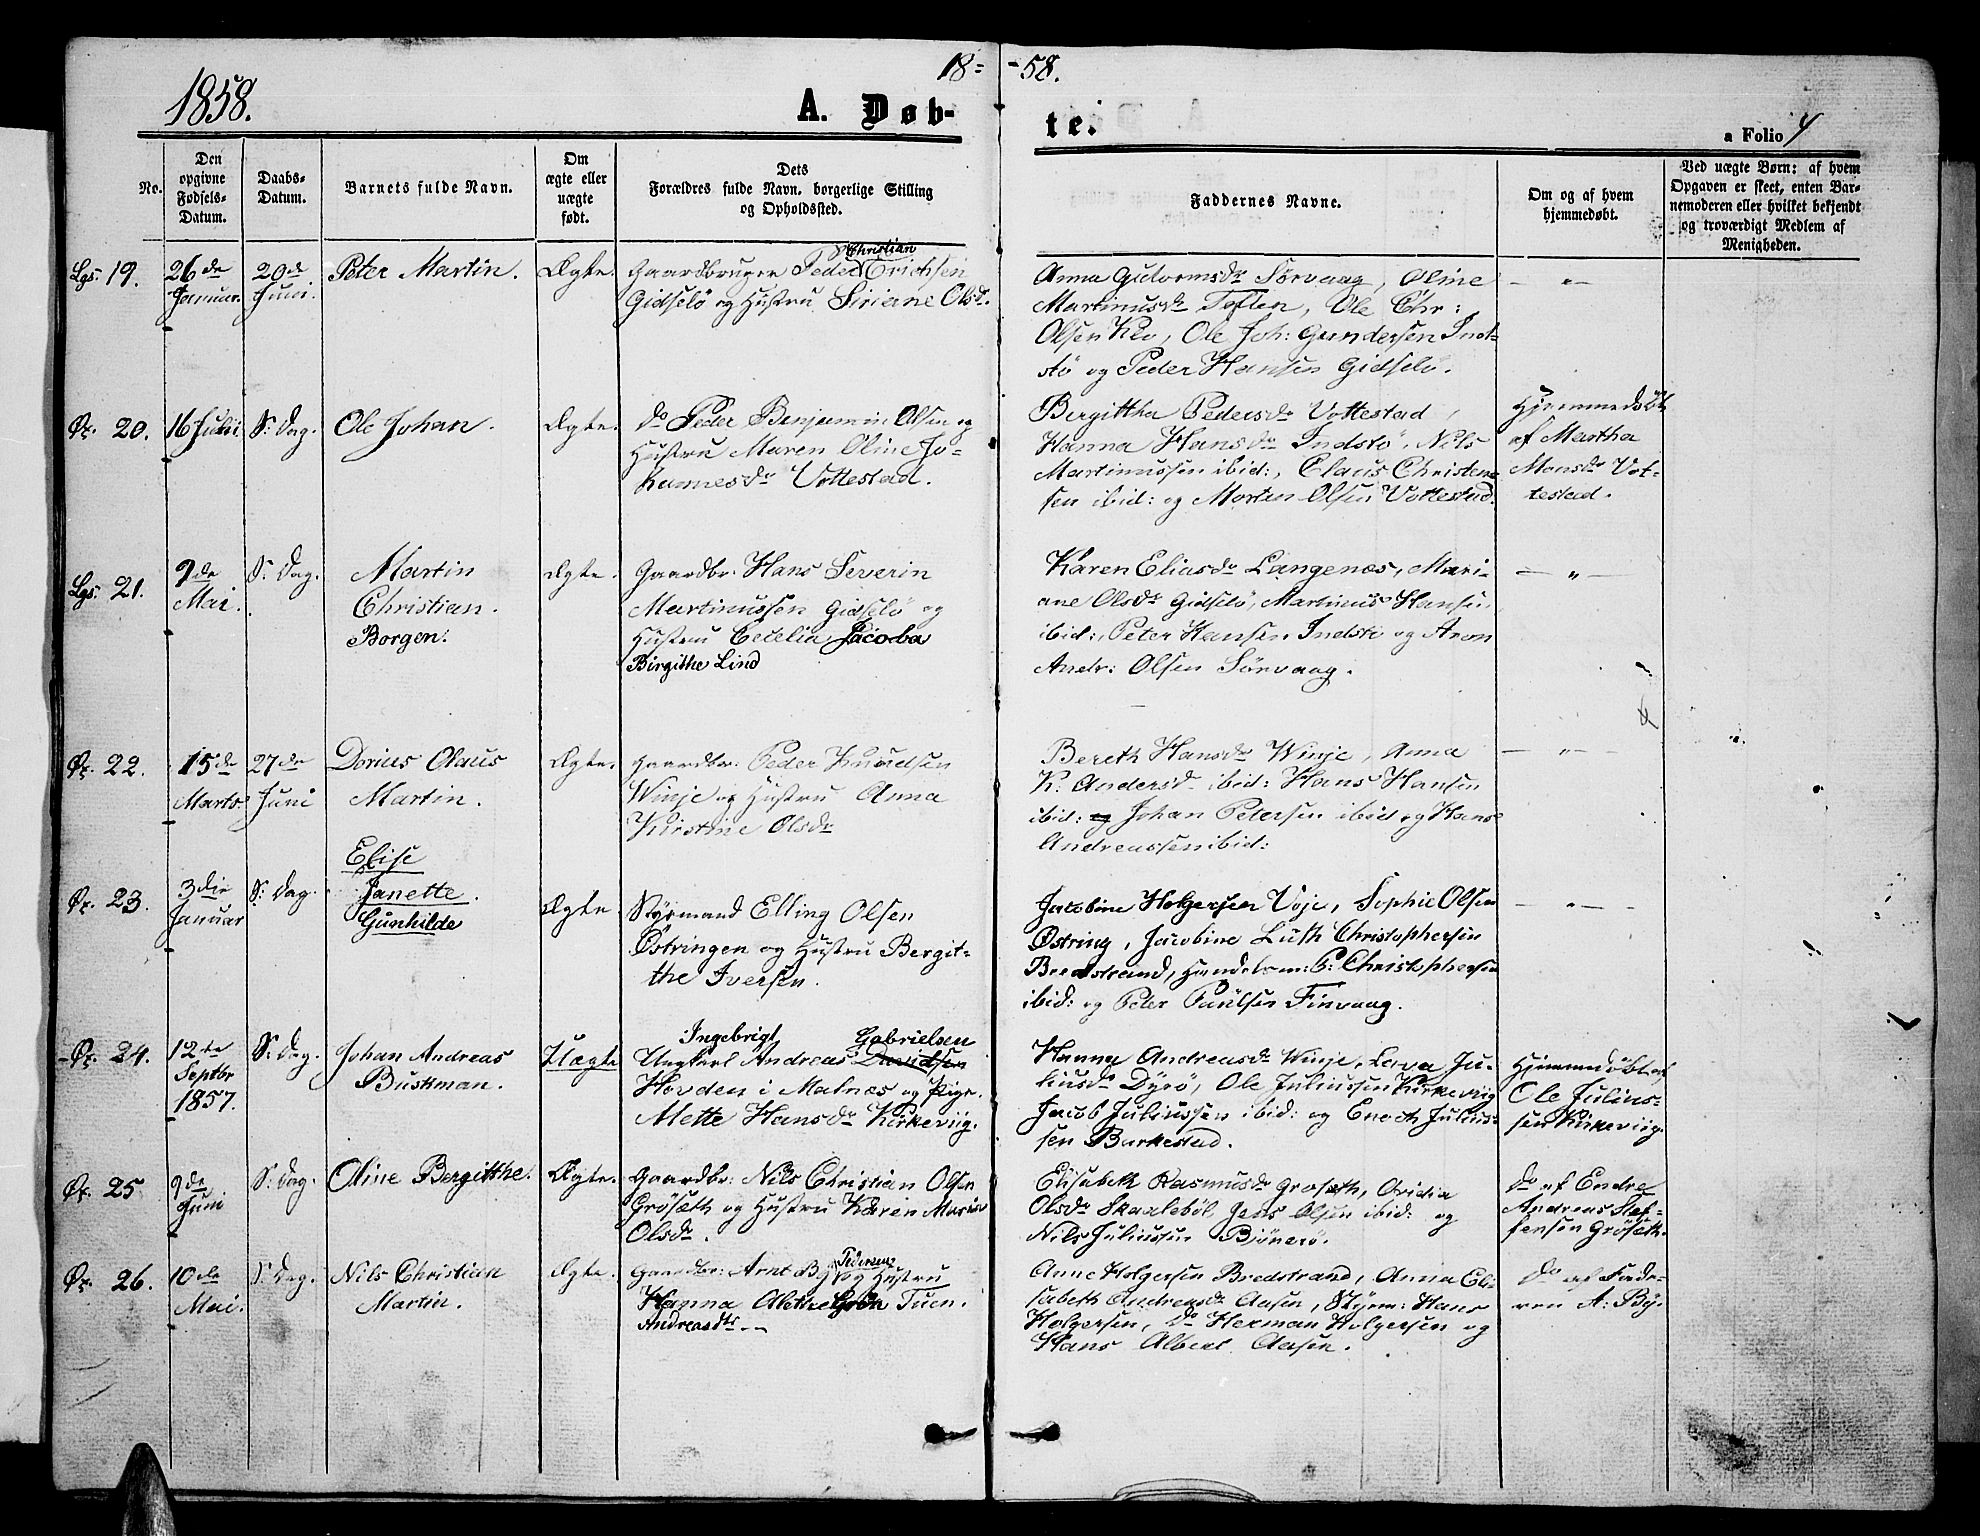 18= -58.
1858.
A. Døb- te.
a Folio 4
No.
Den opgivne Fødsels-Datum.
Daabs-Datum.
Barnets fulde Navn.
Om ægte eller uægte født.
Dets Forældres fulde Navn, borgerlige Stilling og Opholdssted.
Faddernes Navne.
Om og af hvem hjemmedøbt.
Ved uægte Børn: af hvem Opgaven er skeet, enten Barnemoderen eller hvilket bekjendt og troværdigt Medlem af Menigheden.
Lgs. 19.
26de Januar.
20de Juni.
Peter Martin.
Ægte.
Gaardbruger Peder Christian Erichsen
Gidselø og Hustru Siriane Olsdr.
Anna Gutormsdr Sørvaag, Oline
Martinusdr Toften, Ole Chr:
Olsen Klo, Ole Joh: Gundersen Ind-
stø og Peder Hansen Gidselø.
— " —
Ør. 20.
16 Juni
S: Dag.
Ole Johan.
Ægte.
Do Peder Benjamin Olsen og
Hustru Maren Oline Jo-
hannesdr Vottestad.
Bergittha Pedersdr Vottestad,
Hanna Hansdr Indstø, Nils
Martinussen ibid:, Claus Christen-
sen ibid: og Morten Olsen Vottestad.
Hjemmedøbt
af Martha
Monsdr Vot-
testad.
Lgs. 21.
9de Mai.
S: Dag.
Martin
Christian
Borgen.
Ægte.
Gaardbr. Hans Severin
Martinussen Gidselø og
Hustru Cecelia Jacoba
Birgithe Lind
Karen Eliasdr Langenæs, Mari-
ane Olsdr Gidselø, Martinus Hansen
ibid:, Peter Hansen Indstø og Aron
Andr: Olsen Sørvaag.
— " —
Ør. 22.
15de Marts.
27de Juni
Dorius Olaus
Martin.
Ægte.
Gaardbr: Peder Knudsen
Winje og Hustru Anna
Kirstine Olsdr
Bereth Hansdr Winje, Anna
K. Andersd. ibid: Hans Hansen
ibid: og Johan Petersen ibid og Hans
Andreassen ibid:
— " —
Ør. 23.
3die Januar
S: Dag.
Elise
Janette.
Gunhilde
Ægte
Styrmand Elling Olsen
Østringen og Hustru Bergit-
the Iversen.
Jacobine Holgersen Voje, Sophie Olsen
Østring, Jacobine Luth Christophersen
Bredstrand, Handelsm: P: Christophersen
ibid: og Peter Paulsen Finvaag.
— " —
Ør. 24.
12te Septbr 1857.
S: Dag.
Johan Andreas
Buskman.
Uægte
Ingebrigt Gabrielsen
Ungkarl Andreas Davidsen
Hovden i Malnæs og Pige
Mette Hansdr Kirkeviig.
Hanna Andreasdr Winje, Lova Ju-
liusdr Dyrø, Ole Juliussen Kirkeviig
Jacob Juliussen ibid: og Enoch Julius-
sen Barkestad.
Hjemmedøbt af
Ole Julius-
sen Kirkeviig.
Ør. 25
9de Juni
S: Dag.
Oline Bergitthe.
Ægte.
Gaardbr: Nils Christian Olsen
Grøseth og Hustru Karen Maria
Olsdr.
Elisabeth Rasmusdr Grøseth, Ovidia
Olsdr Skaalebøl, Jens Olsen ibid: og
Nils Juliussen Bjønerø.
Do af Endre
Andreas Stef-
fensen Grøseth.
Ør. 26.
10de Mai.
S: Dag.
Nils Christian
Martin.
Ægte.
Gaardbr: Arnt By Pedersen og Hustru
Hanna Alethe Grøn Tuen.
Andreasdtr
Anne Holgersen Bredstrand, Anna Eli-
sabeth Andreasdr Aasen, Styrm: Hans
Holgersen, Do Herman Holgersen og
Hans Albert Aasen.
Do af Fade-
ren A: By.